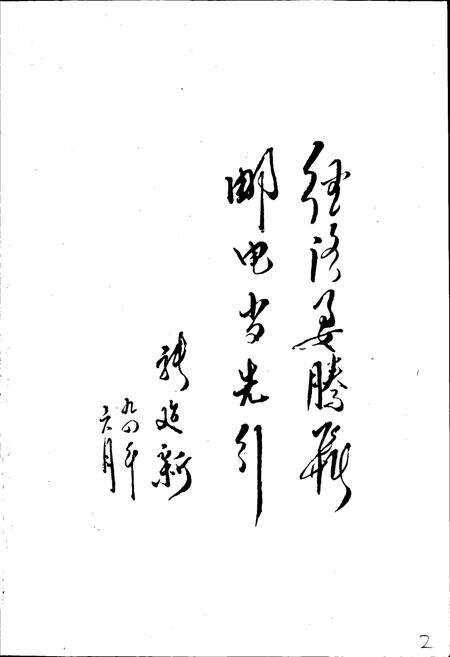 经济要腾飞
邮电当先行
九四年
六月
2